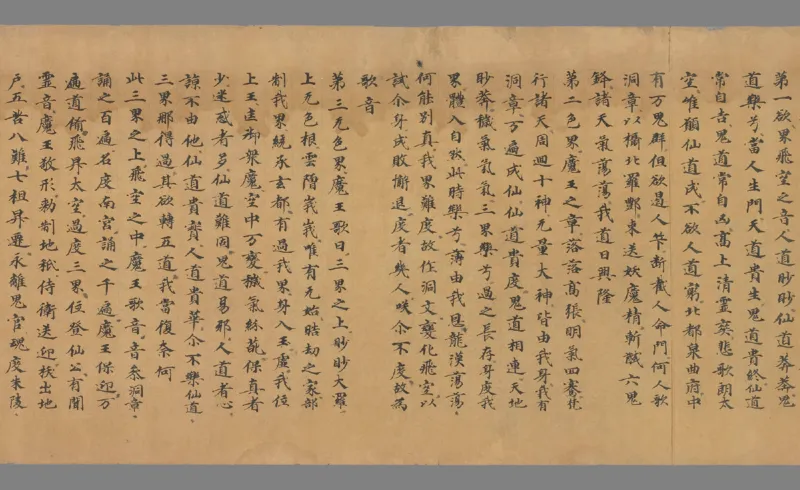 第一欲界飛空之音人道眇眇仙道莽莽鬼
道樂兮當人生門天道貴生鬼道貴終仙道
常自吉鬼道常自凶高上清靈爽悲歌朗太
空唯願仙道成不欲人道窮北都泉曲府中
有万鬼群但欲遏人筭斷截人命門何人歌
洞章以攝北羅酆束送妖魔精斬馘六鬼
鋒諸天氣蕩蕩我道日興隆
第二色界魔王之章落落高張明氣四騫梵
行諸天周迴十神无量大神皆由我身我有
洞章万遍成仙仙道貴度鬼道相連天地
眇莽穢氣氣氣三界樂兮過之長存身度我
界體入自然此時樂兮薄由我恩龍漢蕩蕩
何能別真我界難度故作洞文變化飛空以
試尒身成敗懈退度者幾人嘆尒不度故爲
歌音
第三无色界魔王歌曰三界之上眇眇大羅
上无色根雲層峩峩唯有元始晧劫之家部
制我界統承玄都有過我界身入玉虛我位
上王匡御衆魔空中万變穢氣紛葩保真者
少迷惑者多仙道難固鬼道易邪人道者心
諒不由他仙道貴實人道貴華尒不樂仙道
三界那得過其欲轉五道我當復奈何
此三界之上飛空之中魔王歌音音參洞章
誦之百遍名度南宮誦之千遍魔王保迎万
遍道備飛昇太空過度三界位登仙公有聞
靈音魔王敬形勑制地祇侍衛送迎拔出地
戶五苦八難七祖昇遷永離鬼官魂度朱陵